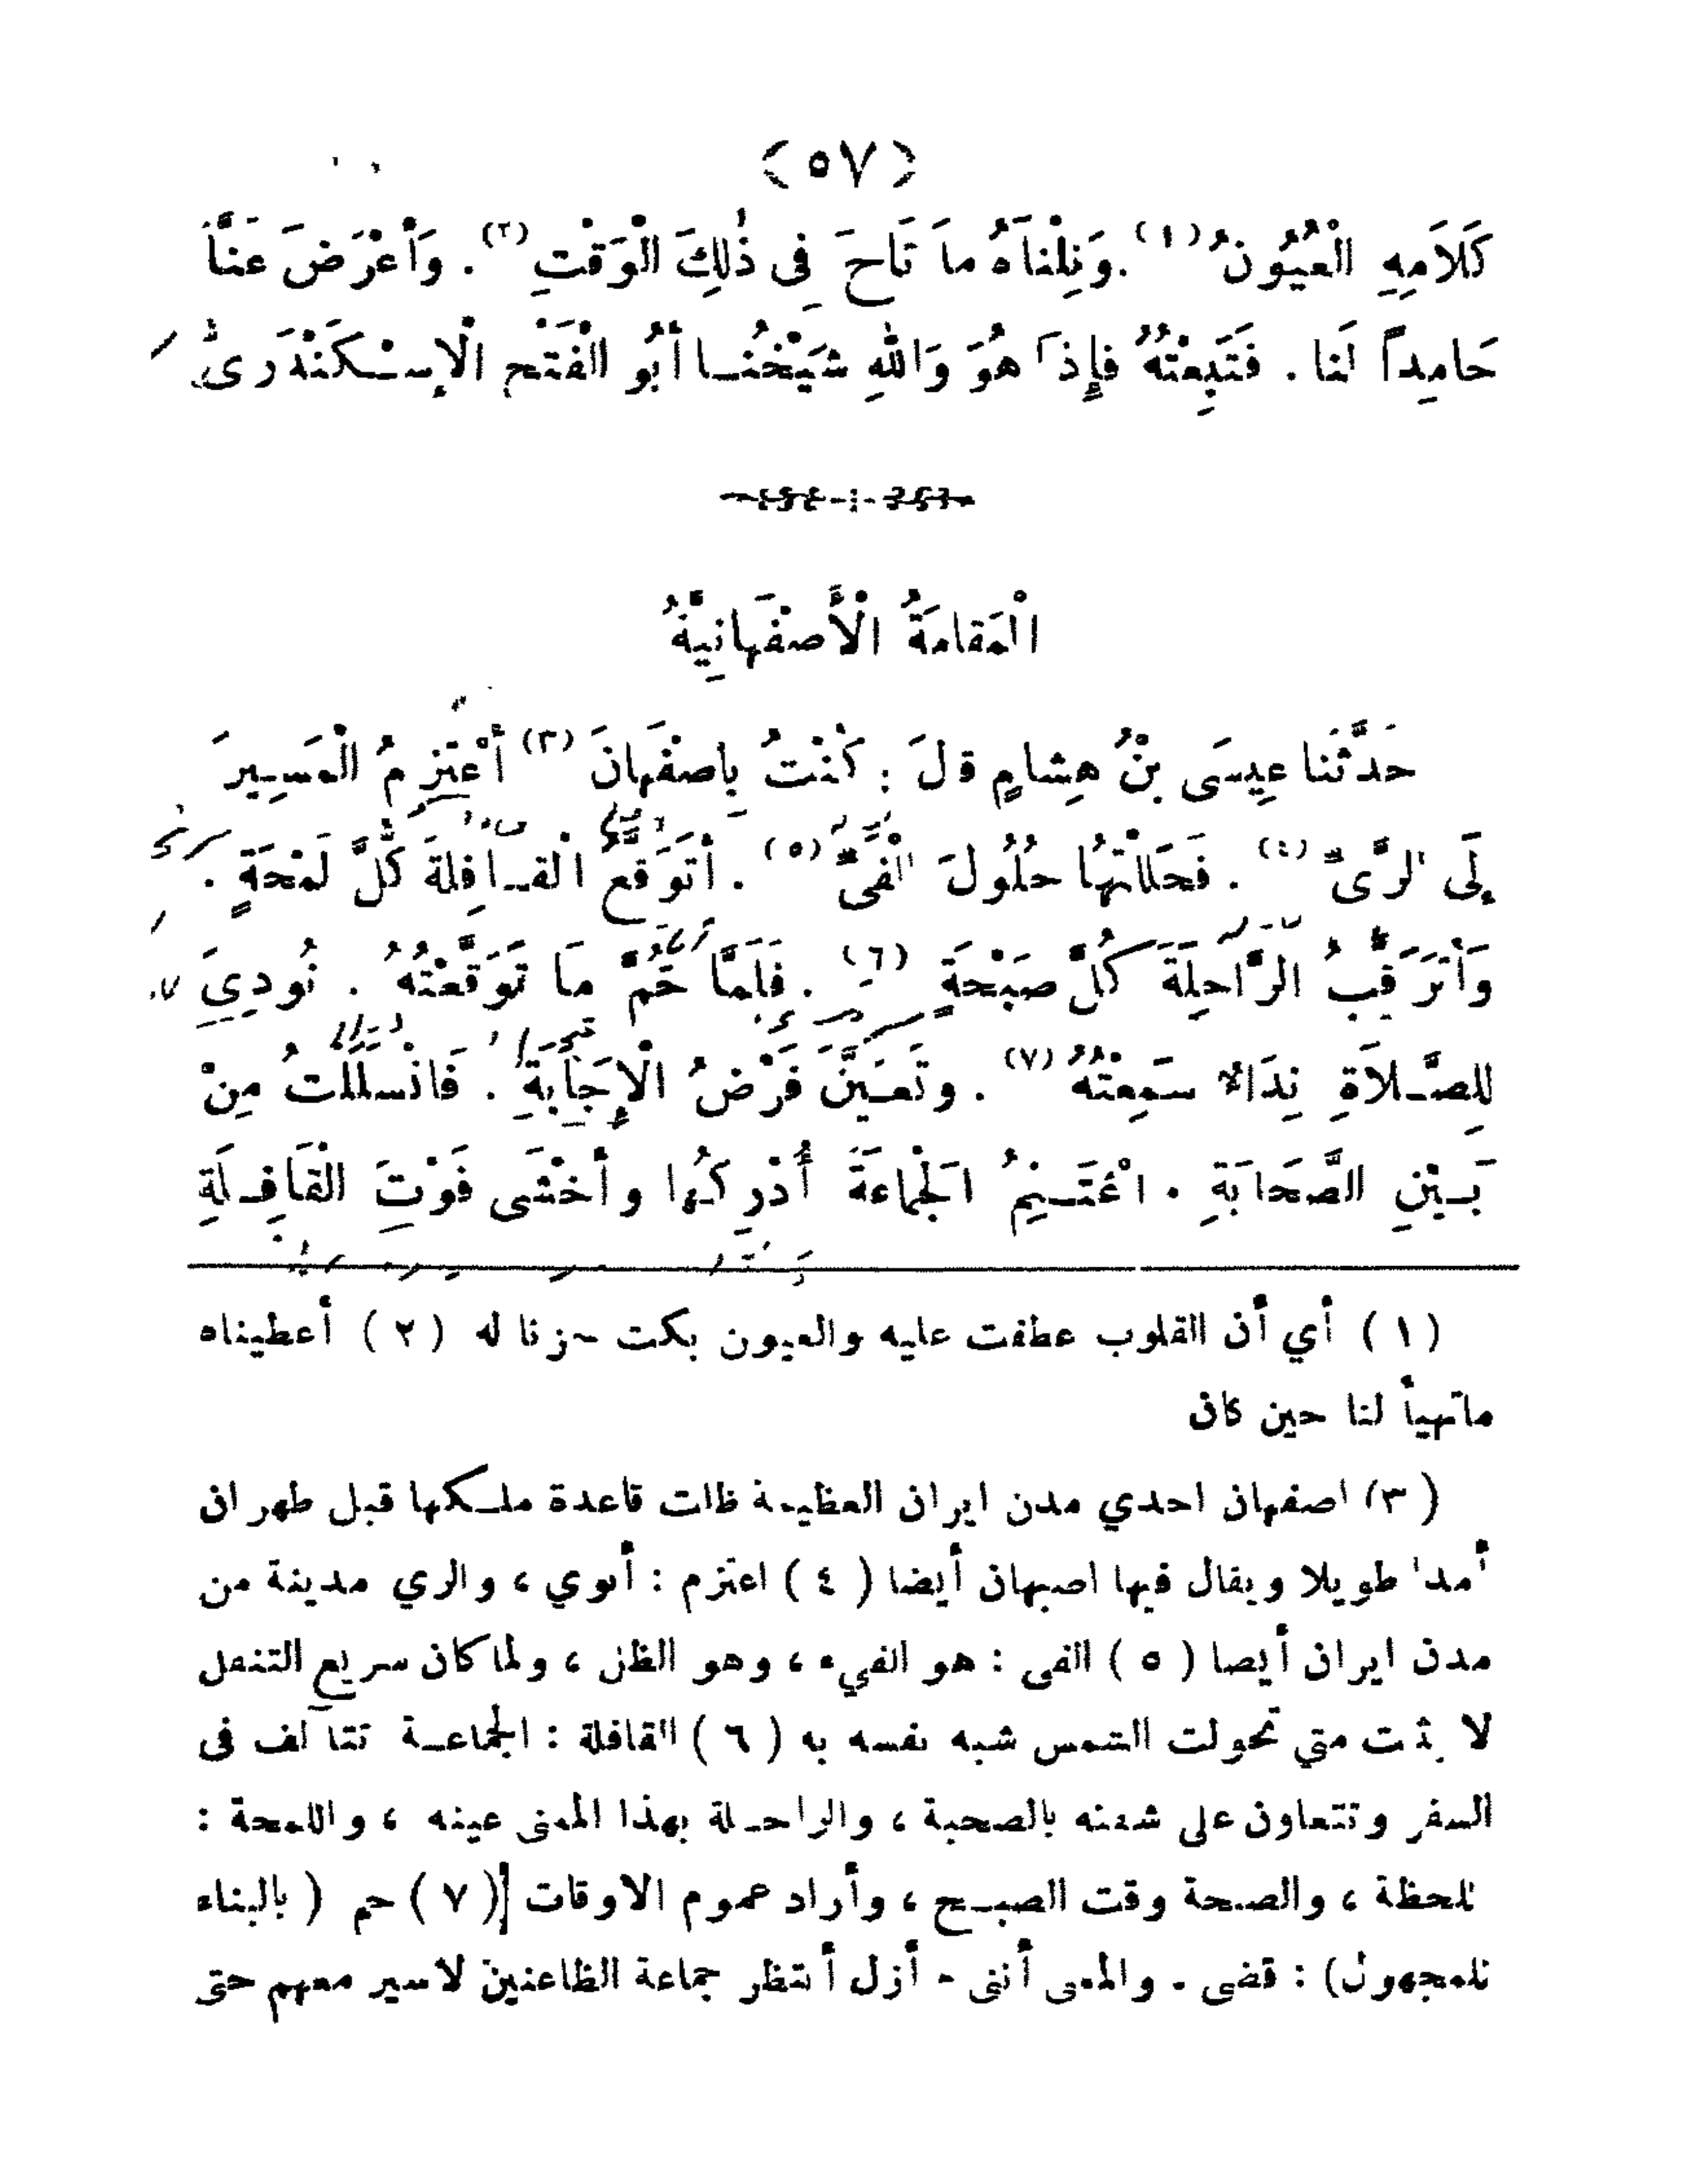 (٥٧)
كَلاَمِهِ الْعُيُونُ (١) . وَنِلْنَاهُ مَا تَاحَ فِي ذٰلِكَ الْوَقْتِ (٢) . وَأَعْرَضَ عَنَّا
حَامِداً لَنا . فَتَبِعْتُهُ فإِذَا هُوَ وَاللهِ شَيْخُنا أَبُو الْفَتْحِ الْإِسْكَنْدَرِىُّ
الْمَقامَةُ الْأَصْفَهانِيَّةُ
حَدَّثَنا عِيسَى بْنُ هِشامٍ قالَ : كُنْتُ بِاصْفَهانَ (٣) أَعْتَزِمُ الْمَسِيرَ
إِلَى الرَّىِّ (٤) . فَحَلَلْتُهَا حُلُولَ الْفَىِّ (٥) . أَتَوَقَّعُ الْقافِلةَ كُلَّ لَمْحَةٍ .
وَأَتَرَقَّبُ الرَّاحِلَةَ كُلَّ صَبْحَةٍ (٦) . فَلَمَّا حُمَّ مَا تَوَقَّعْتُهُ . نُودِيَ
لِلصَّلاَةِ نِدَاءً سَمِعْتُهُ (٧) . وتَعَيَّنَ فَرْضُ الْإِجَابَةِ . فَانْسَلَلْتُ مِنْ
بَيْنِ الصَّحَابَةِ . اغْتَنِمُ الَجْماعَةَ أُدْرِكُها وأَخْشَى فَوْتَ الْقَافِلَةِ
(١) أي أن القلوب عطفت عليه والعيون بكت حزنا له (٢) أعطيناه
ماتهيأ لنا حين كان
(٣) اصفهان احدي مدن ايران العظيمة ظلت قاعدة ملكها قبل طهران
أمدا طويلا ويقال فيها اصبهان أيضا (٤) اعتزم : أنوي ، والري مدينة من
مدن ايران أيضا (٥) الفى : هو الفيء ، وهو الظل ، ولما كان سريع التنقل
لا يثبت متي تحولت الشمس شبه نفسه به (٦) القافلة : الجماعة تتآلف فى
السفر وتتعاون على مشقته بالصحبة ، والراحلة بهذا المعنى عينه ، واللمحة :
اللحظة ، والصبحة وقت الصبح ، وأراد عموم الاوقات (٧) حم ( بالبناء
للمجهول) : قضى . والمعنى أننى لم أزل أنتظر جماعة الظاعنين لاسير معهم حتى